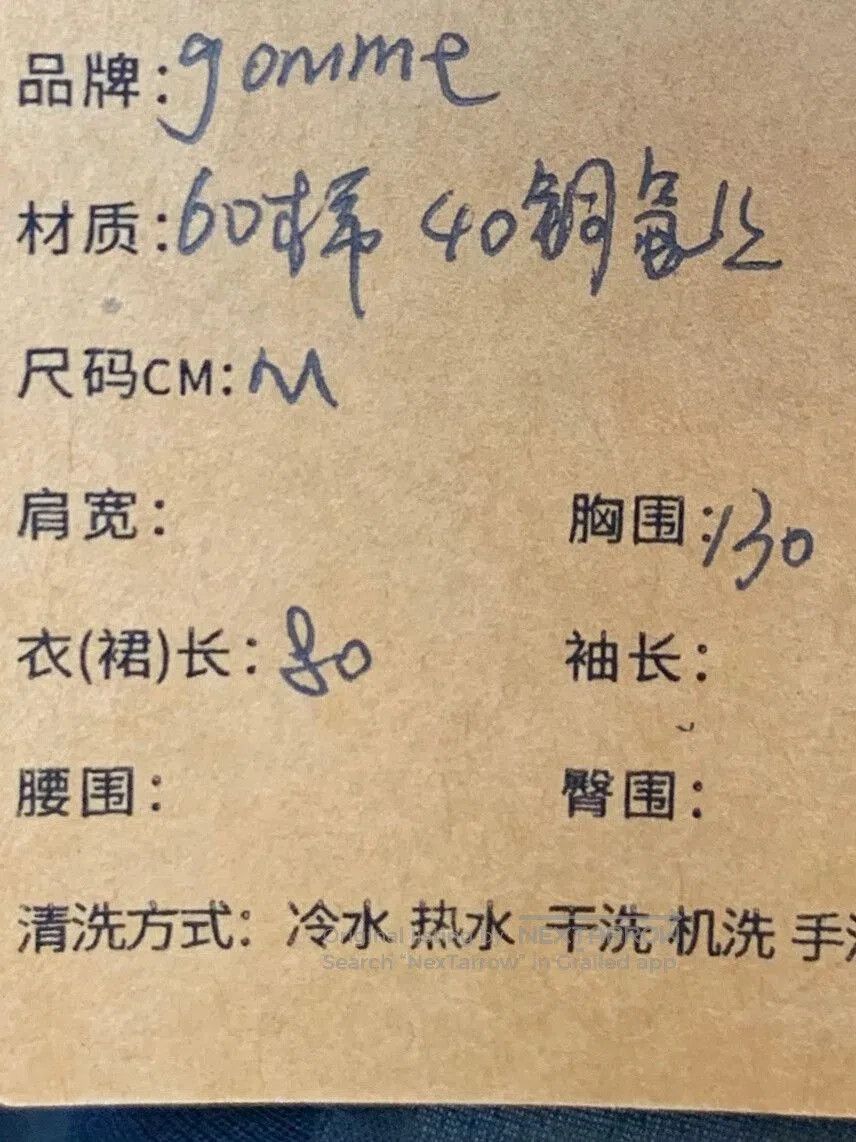 品牌:gomme
材质:60棉 40铜氨丝
尺码CM:M
肩宽: 胸围:130
衣(裙)长:80 袖长:
腰围: 臀围:
清洗方式: 冷水 热水 干洗 机洗 手洗
NEXTARROW
Search "NexTarrow" in Grailed app